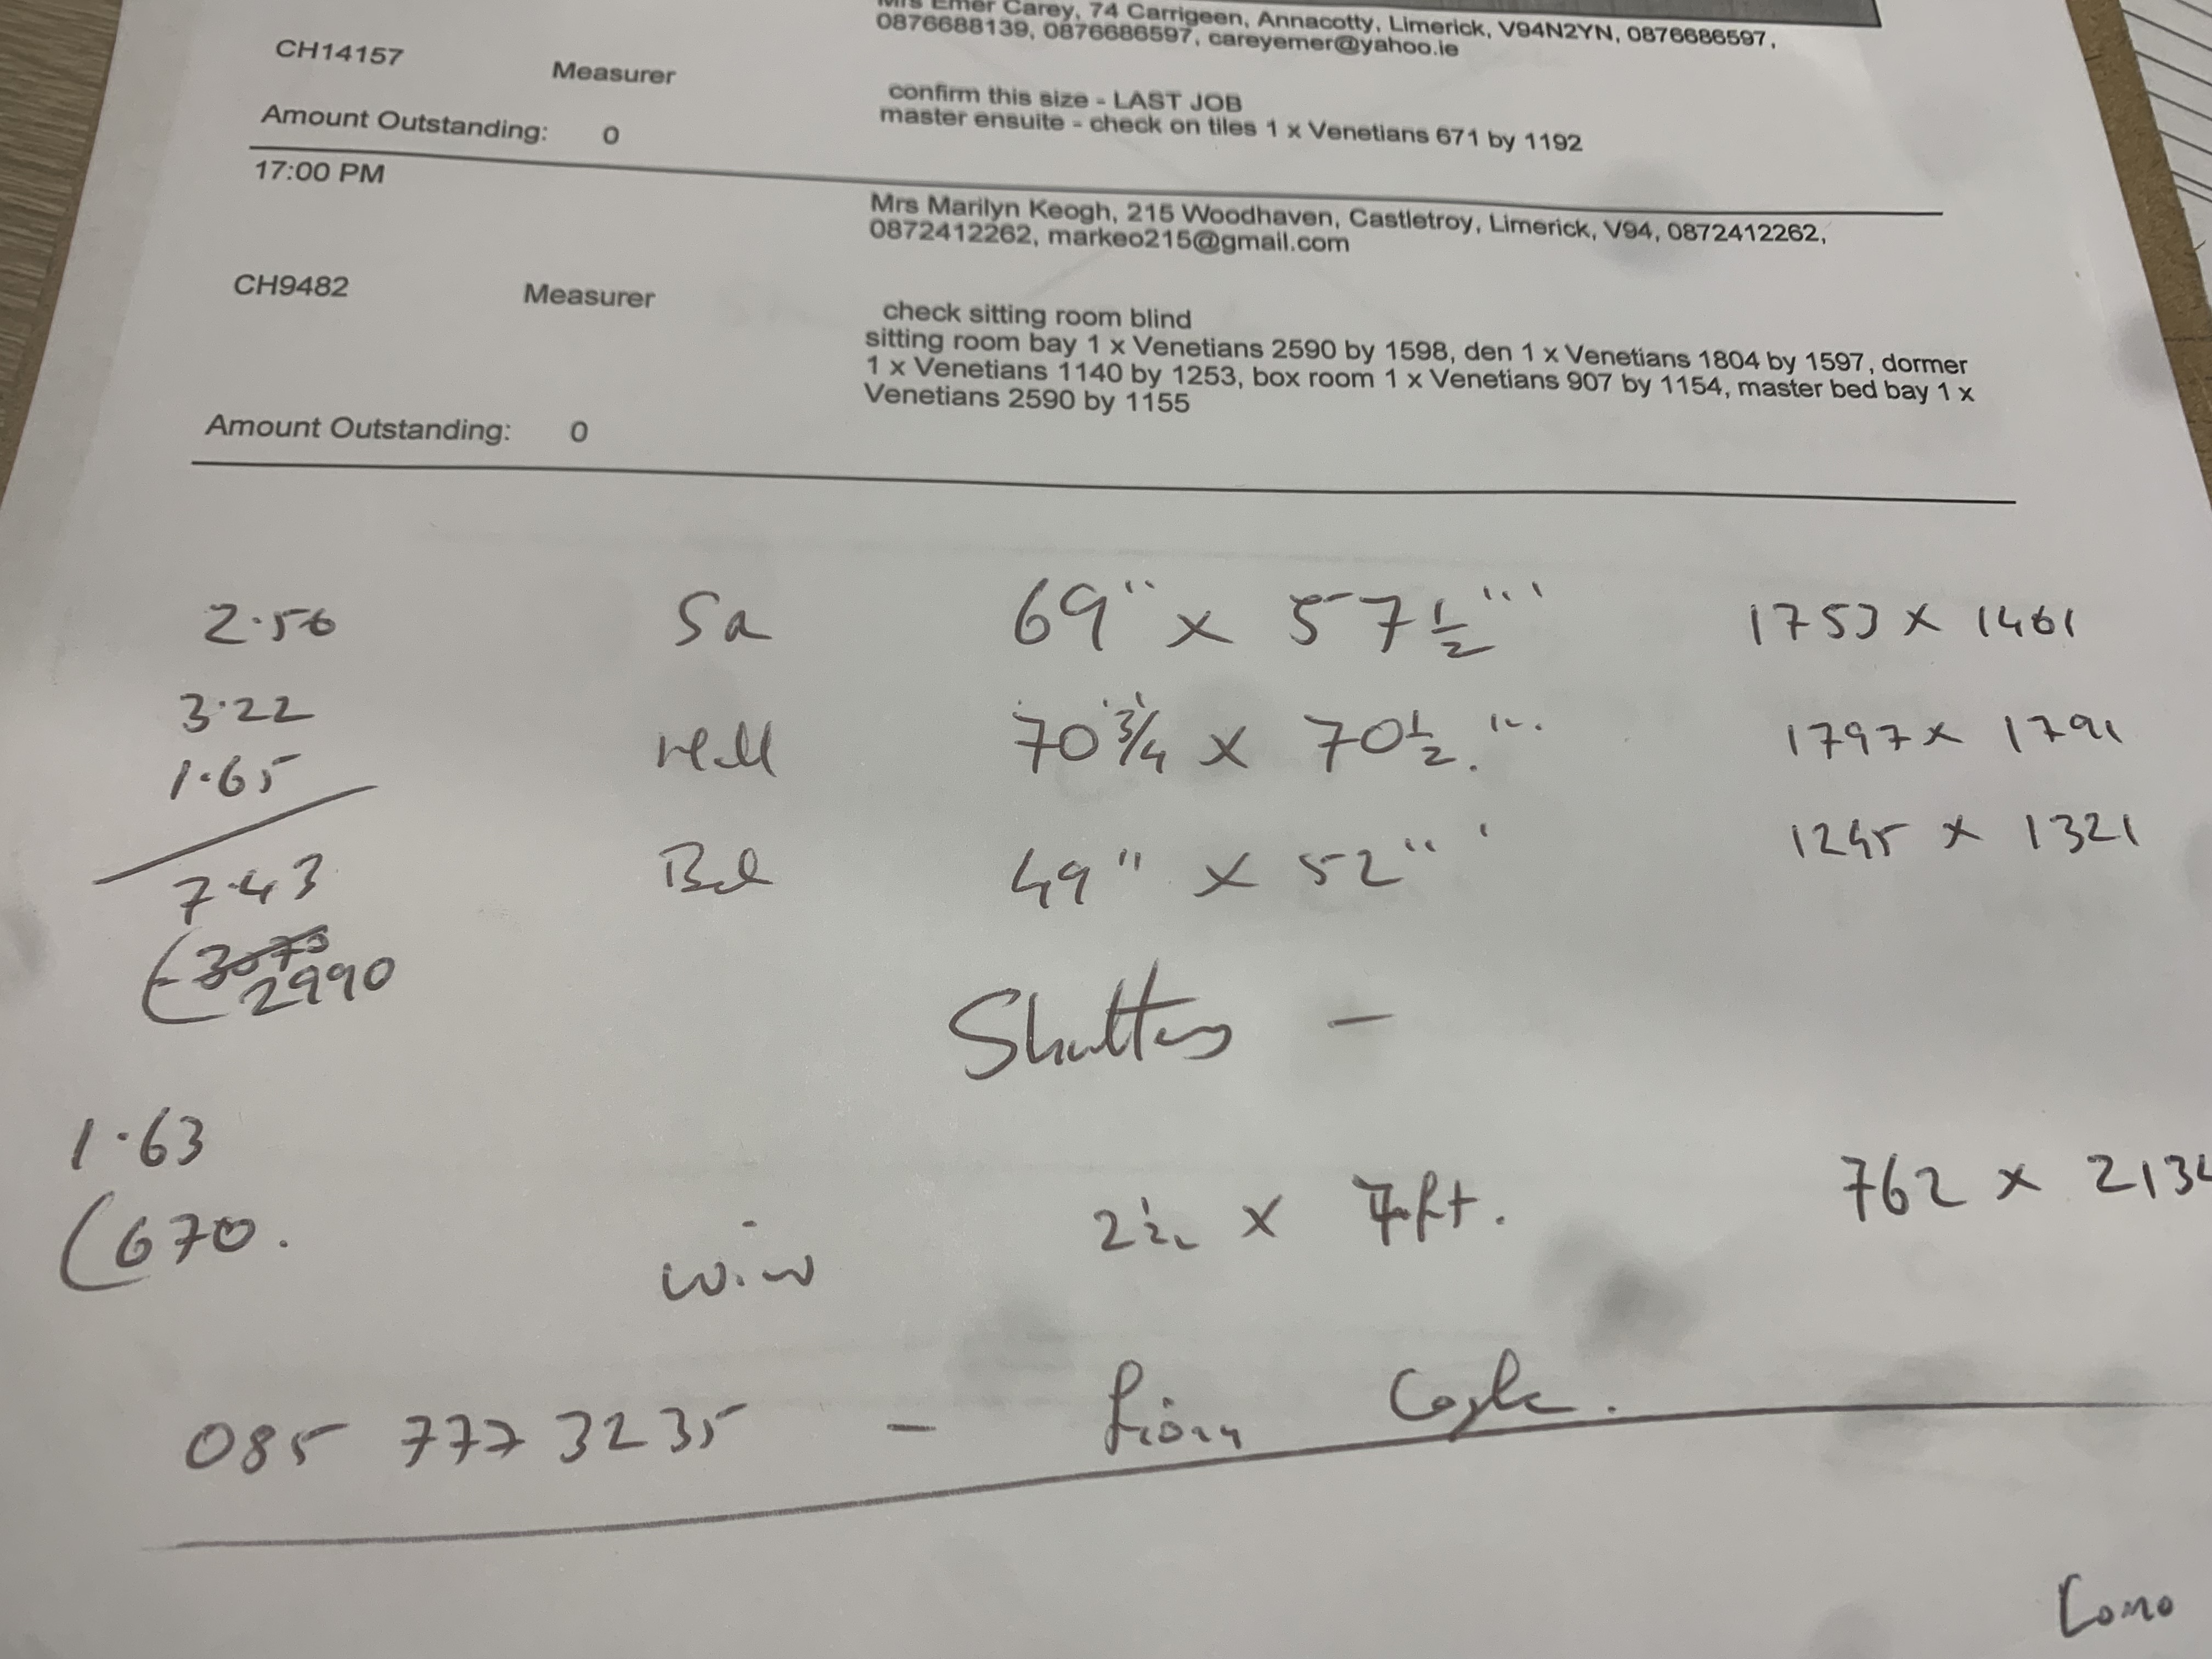 Mrs Emer Carey, 74 Carrigeen, Annacotty, Limerick, V94N2YN, 0876686597,
0876688139, 0876686597, careyemer@yahoo.ie
CH14157 Measurer
confirm this size - LAST JOB
master ensuite - check on tiles 1 x Venetians 671 by 1192
Amount Outstanding: 0
17:00 PM
Mrs Marilyn Keogh, 215 Woodhaven, Castletroy, Limerick, V94, 0872412262,
0872412262, markeo215@gmail.com
CH9482 Measurer
check sitting room blind
sitting room bay 1 x Venetians 2590 by 1598, den 1 x Venetians 1804 by 1597, dormer
1 x Venetians 1140 by 1253, box room 1 x Venetians 907 by 1154, master bed bay 1 x
Venetians 2590 by 1155
Amount Outstanding: 0
2.56 69" x 57 1/2" 1753 x 1461
3.22 70 3/4 x 70 1/2 1797 x 1791
1.65 Bed 49" x 52" 1245 x 1321
7.43
2990
Shutters -
1.63
670. 2 1/2 x 7ft. 762 x 2134
085 777 3235 -
Como